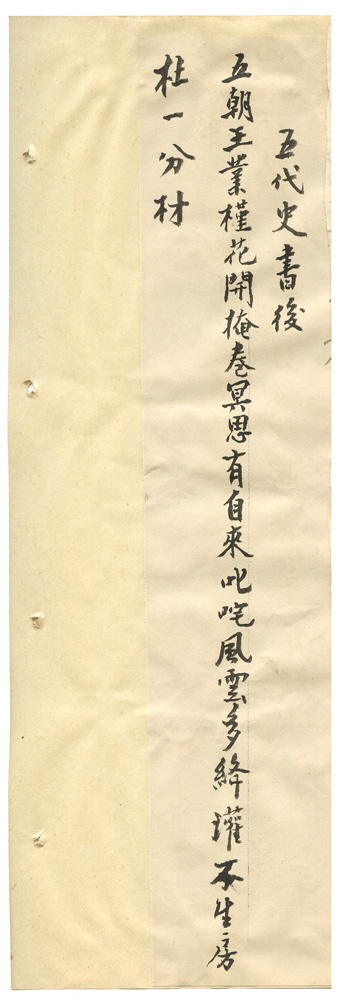 五代史書後
五朝王業槿花開掩卷冥思有自來叱咤風雲多絳灌不生房
杜一分材